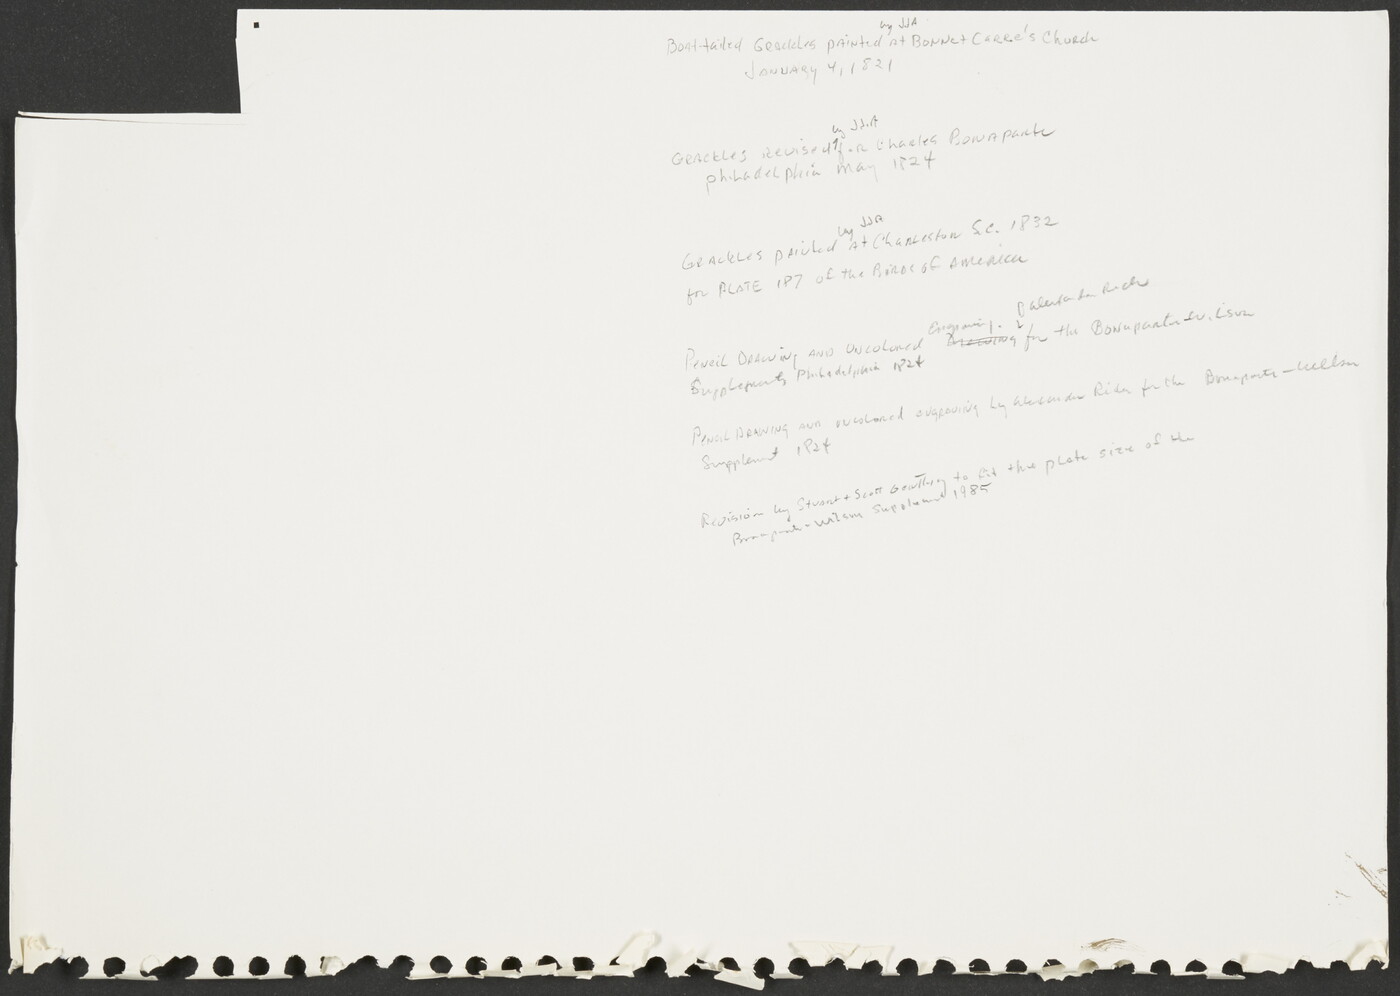 by JJA
Boat-tailed Grackles painted at Bonnet Carre's Church
January 4, 1821
by JJA
Grackles revised for Charles Bonaparte
Philadelphia May 1824
by JJA
Grackles painted at Charleston S.C. 1832
for PLATE 187 of the Birds of America
Engraving Alexander Rider
Pencil Drawing and Uncolored Drawing for the Bonaparte-Wilson
Supplement Philadelphia 1824
Pencil Drawing and uncolored engraving by Alexander Rider for the Bonaparte-Wilson
Supplement 1824
Revision by Stuart + Scott to fit the plate size of the
Bonaparte-Wilson Supplement 1985